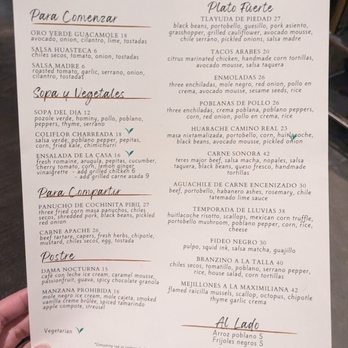 Para Comenzar
ORO VERDE GUACAMOLE 18
avocado, onion, cilantro, lime, tostadas
SALSA HUASTECA 6
chiles secos, tomato, onion, tostadas
SALSA MADRE 6
roasted tomato, garlic, serrano, onion,
cilantro, tostadas
Sopa y Vegetales
SOPA DEL DIA 12
pozole verde, hominy, pollo, poblano,
peppers, thyme, serrano
COLIFLOR CHARREADA 18
salsa verde, poblano pepper, pepitas,
corn, fried kale, chimichurri
ENSALADA DE LA CASA 16
fresh romaine, arugula, pepitas, cucumber,
cherry tomato, corn, lemon ginger
vinaigrette - add grilled chicken 6
- add grilled carne asada 9
Para Compartir
PANUCHO DE COCHINITA PIBIL 27
three fried corn masa panuchos, chiles
secos, shredded pork, black beans, pickled
red onion
CARNE APACHE 26
beef tartare, capers, fresh herbs, cilantro,
mustard, chiles secos, egg, tostada
Postre
DAMA NOCTURNA 15
café con leche ice cream, caramel mousse,
passionfruit, guava, spicy chocolate granola
MANZANA PROHIBIDA 16
mole negro ice cream, mole cajeta, smoked
vanilla creme brûlée, spiced tamarindo
apple compote, streusel
Vegetarian
Plato Fuerte
TLAYUDA DE PIEDAD 27
black beans, portobello, quesillo, pork asiento,
grasshopper, grilled cauliflower, avocado mousse,
chile serrano, pickled onions, salsa madre
TACOS ARABES 20
citrus marinated chicken, handmade corn tortillas,
avocado mousse, salsa taquera
ENMOLADAS 26
three enchiladas, mole negro, red onion, pollo en
crema, avocado mousse, sesame seeds, rice
POBLANAS DE POLLO 26
three enchiladas, crema poblana, poblano peppers,
corn, red onion, pollo en crema, rice
HUARACHE CAMINO REAL 23
masa nixtamalizada, portobello, corn, huitlacoche,
black beans, avocado mousse, pickled onion
CARNE SONORA 42
teres major beef, salsa macha, nopales, salsa
taquera, black beans, queso fresco, handmade
tortillas
AGUACHILE DE CARNE ENCENIZADO 30
beef, portobello, habanero ashes, rosemary, chile
tatemado lime sauce
TEMPORADA DE LLUVIAS 38
huitlacoche risotto, scallops, mexican corn truffle,
portobello mushroom, poblano pepper, corn, rice,
tortillas
FIDEO NEGRO 30
pulpo, squid ink, salsa matcha, guajillo
BRANZINO A LA TALLA 40
chiles secos, tomatillo, poblano, serrano pepper,
rice, house salad, corn tortillas
MEJILLONES A LA MAXIMILIANA 42
flamed raicilla mussels, scallop, octopus, chipotle
thyme garlic crema
Al Lado
Arroz poblano 5
Frijoles negros 5